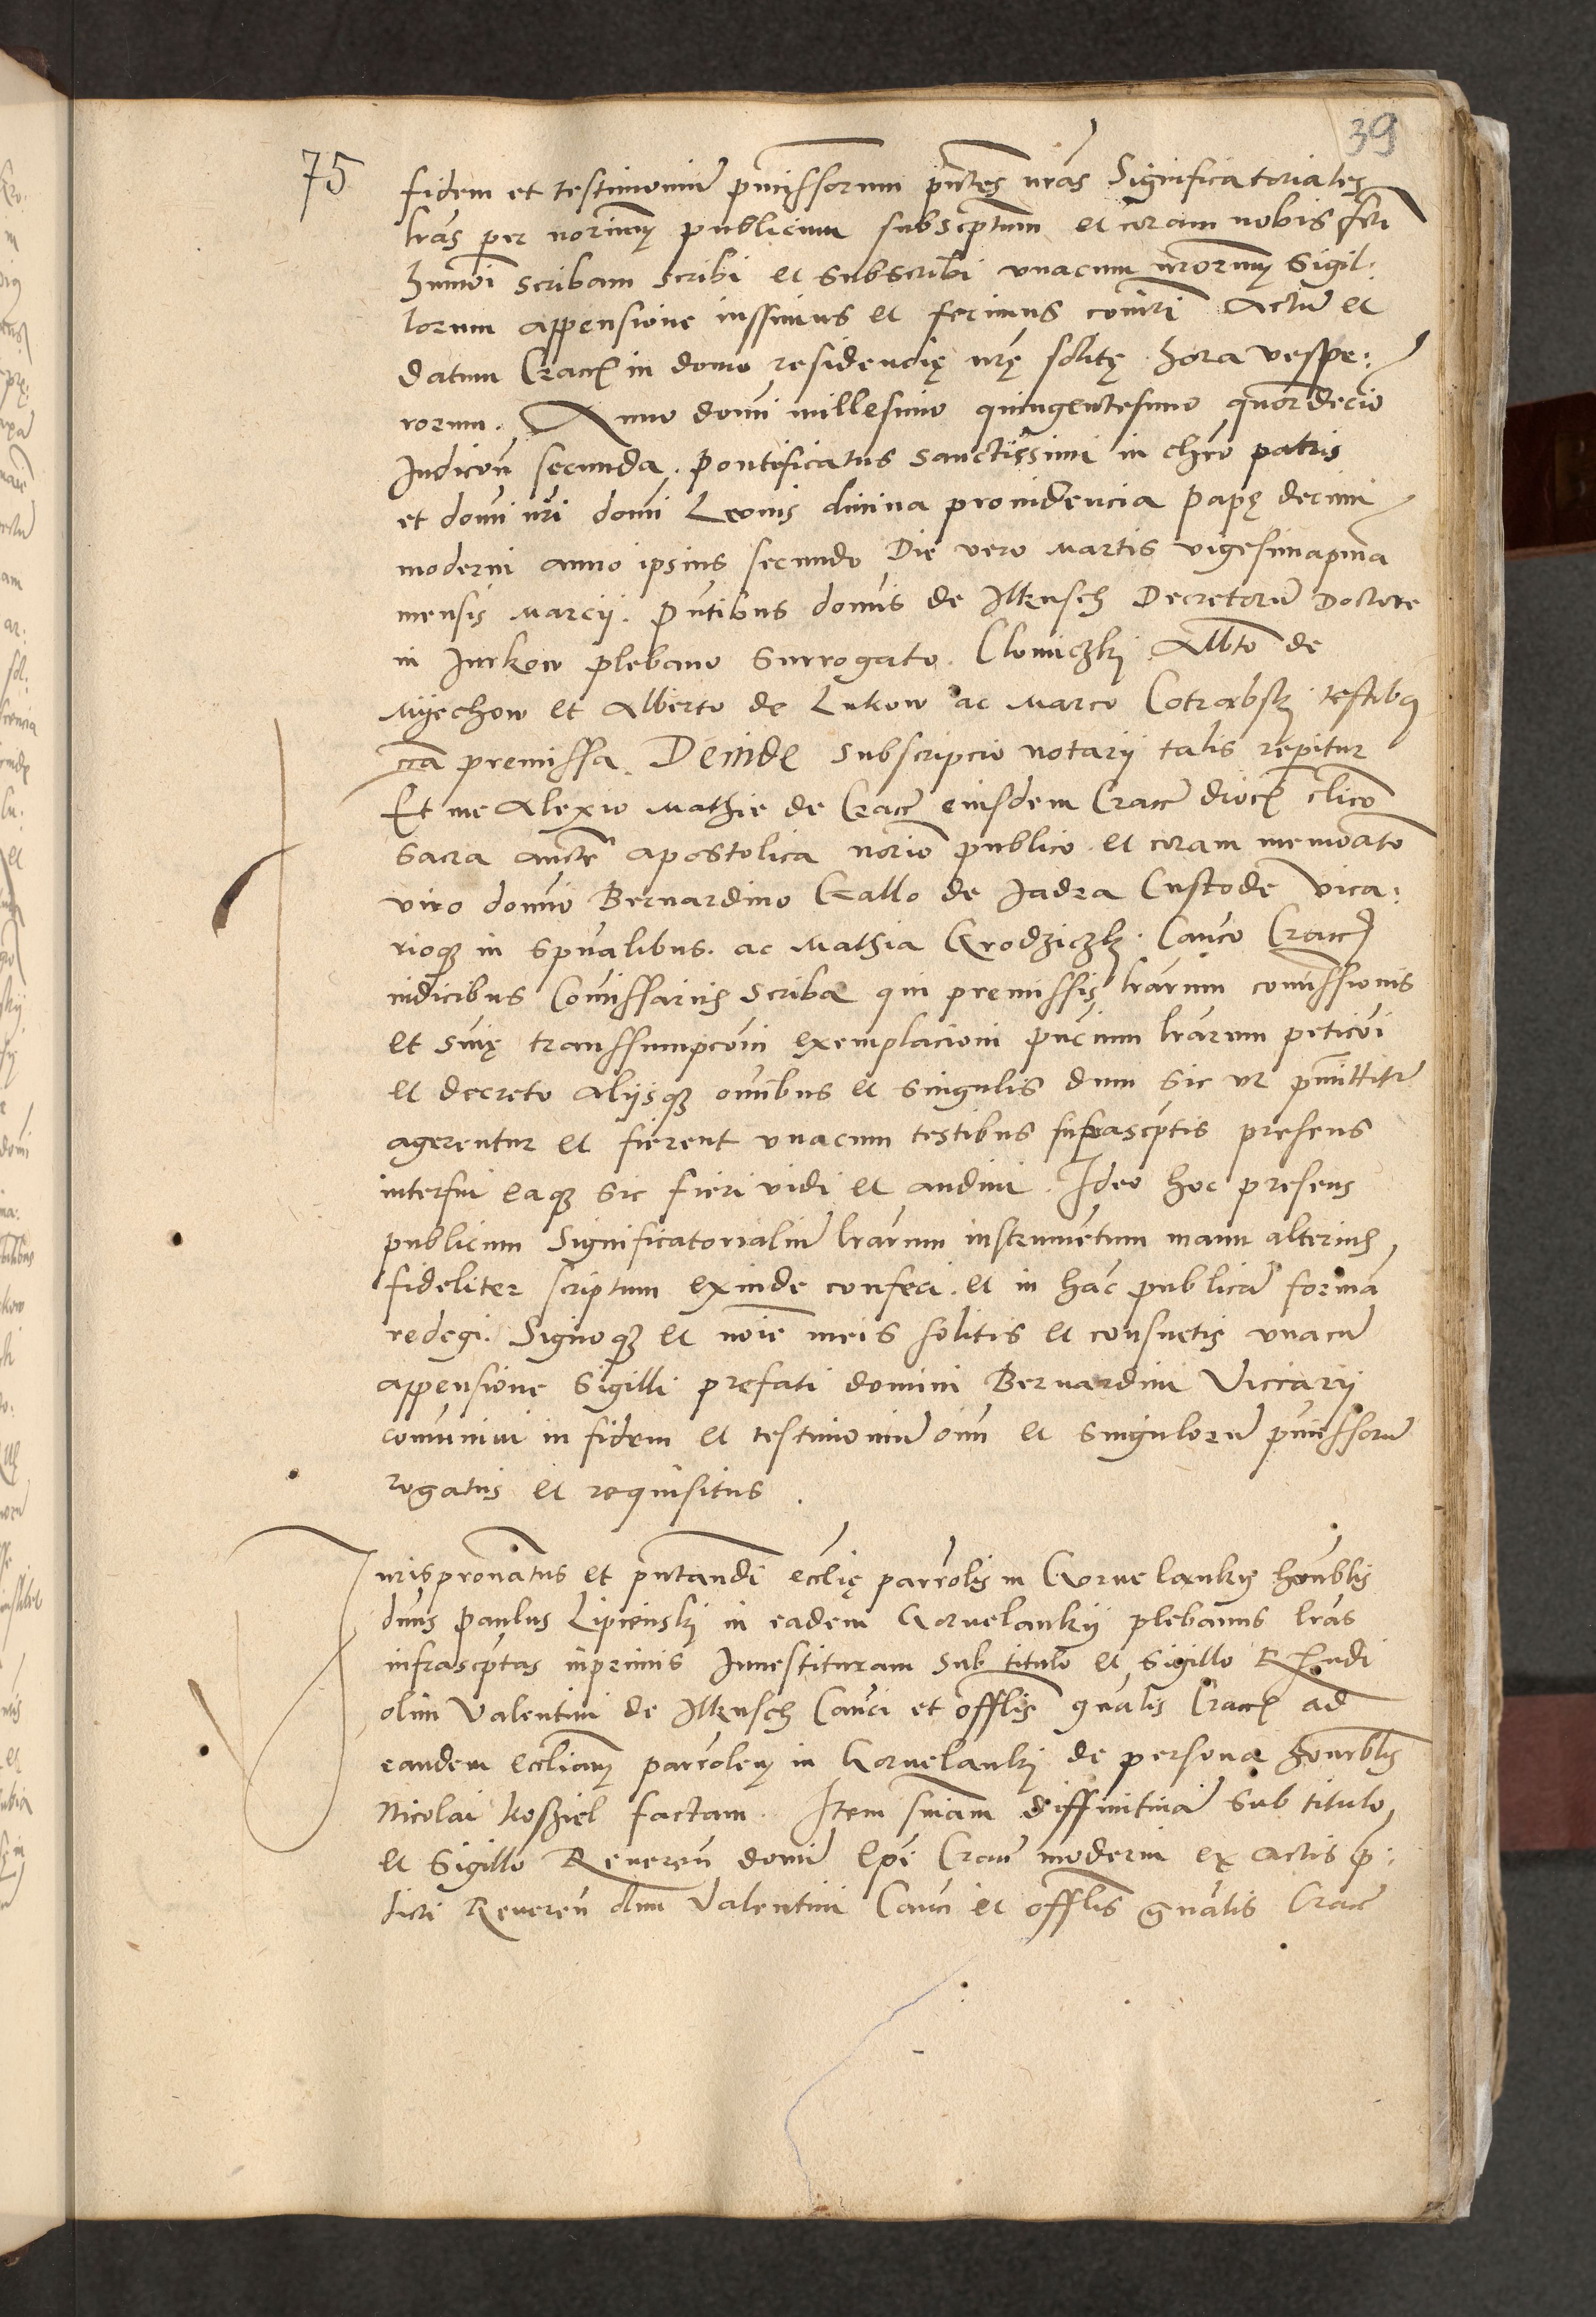 39
75
fidem et testimoniũ pmissorum pñtes nrãs Significatoriales
lrãs per noriũm publicum subscptum et coram nobis fcti
hmõi scribam scribi et subscribi vnacum nrõrum Sigil:
lorum appensione iussimus et fecimus comũri Actũ et
datum Cracoṽ in domo residencię nrę solitę hora vespe:
rorum. Anno domĩ millesimo quingentesimo quordecĩo
Indicõn secunda. Pontificatus sanctissimi in chrõ patris
et domĩ nrĩ domĩ Leonis diuina prouidencia papę decimi
moderni anno ipsius secundo Die vero Martis vigesimapma
mensis Marcij. Pñtibus domĩs de Ilkusch Decretorũ Doctore
in Jurkow plebano Surrogato. Chomiczkj Albto de
Myechow et Alberto de Lukow ac Marco Cotrabskj testibus
cca premissa. Deinde subscripcio notarij talis repitur
Et me Alexio Mathie de Cracõ eiusdem Cracõ dioc̃ clico
Sacra aucte apostolica norio publico et coram memõato
viro domĩo Bernardino Gallo de Jadra Custode vica:
rioq₃ in spũalibus. ac Mathia Grodziczkj Canco Cracõ
iudicibus Comissarijs scriba qui premissis lrãrum comissionis
et suię transsumpcõni exemplacioni pñcium lrãrum peticõi
et decreto alijsq₃ omĩbus et singulis dum sic vt pmittitr
agerentur et fierent vnacum testibus suprascptis presens
interfui eaq₃ sic fieri vidi et audiui. Ideo hoc presens
publicum Significatorialiũ lrãrum instrumẽtum manu alterius
fideliter scriptum exinde confeci. et in hãc publicã formã
redegi. Signoq₃ et noĩe meis solitis et consuetis vnacũ
appensione Sigilli prefati domini Bernardini Viccarij
comuniui in fidem et testimoniũ oĩm et singulorũ pmissorũ
rogatus et requisitus.
Jurispronatus et pñtandi ecclię parrolis in Gornelanky honblis
dnus Paulus Lipienskj in eadem Gornelankij plebanus lrãs
infrascptas inprimis Inuestituram sub titulo et Sigillo Rẽndi
olim Valentini de Ilkusch Canci et offlis gnalis Cracõ ad
eandem eccliam parrolem in Gornelankj de persona honorblis
Nicolai Koziel factam. Item sniam diffinitiuã sub titulo
et Sigillo Reuereñ domĩ Epĩ Cracõ moderni ex actis p:
dicti Reuereñ dnĩ Valentini Canci et offlis gnalis Cracõ